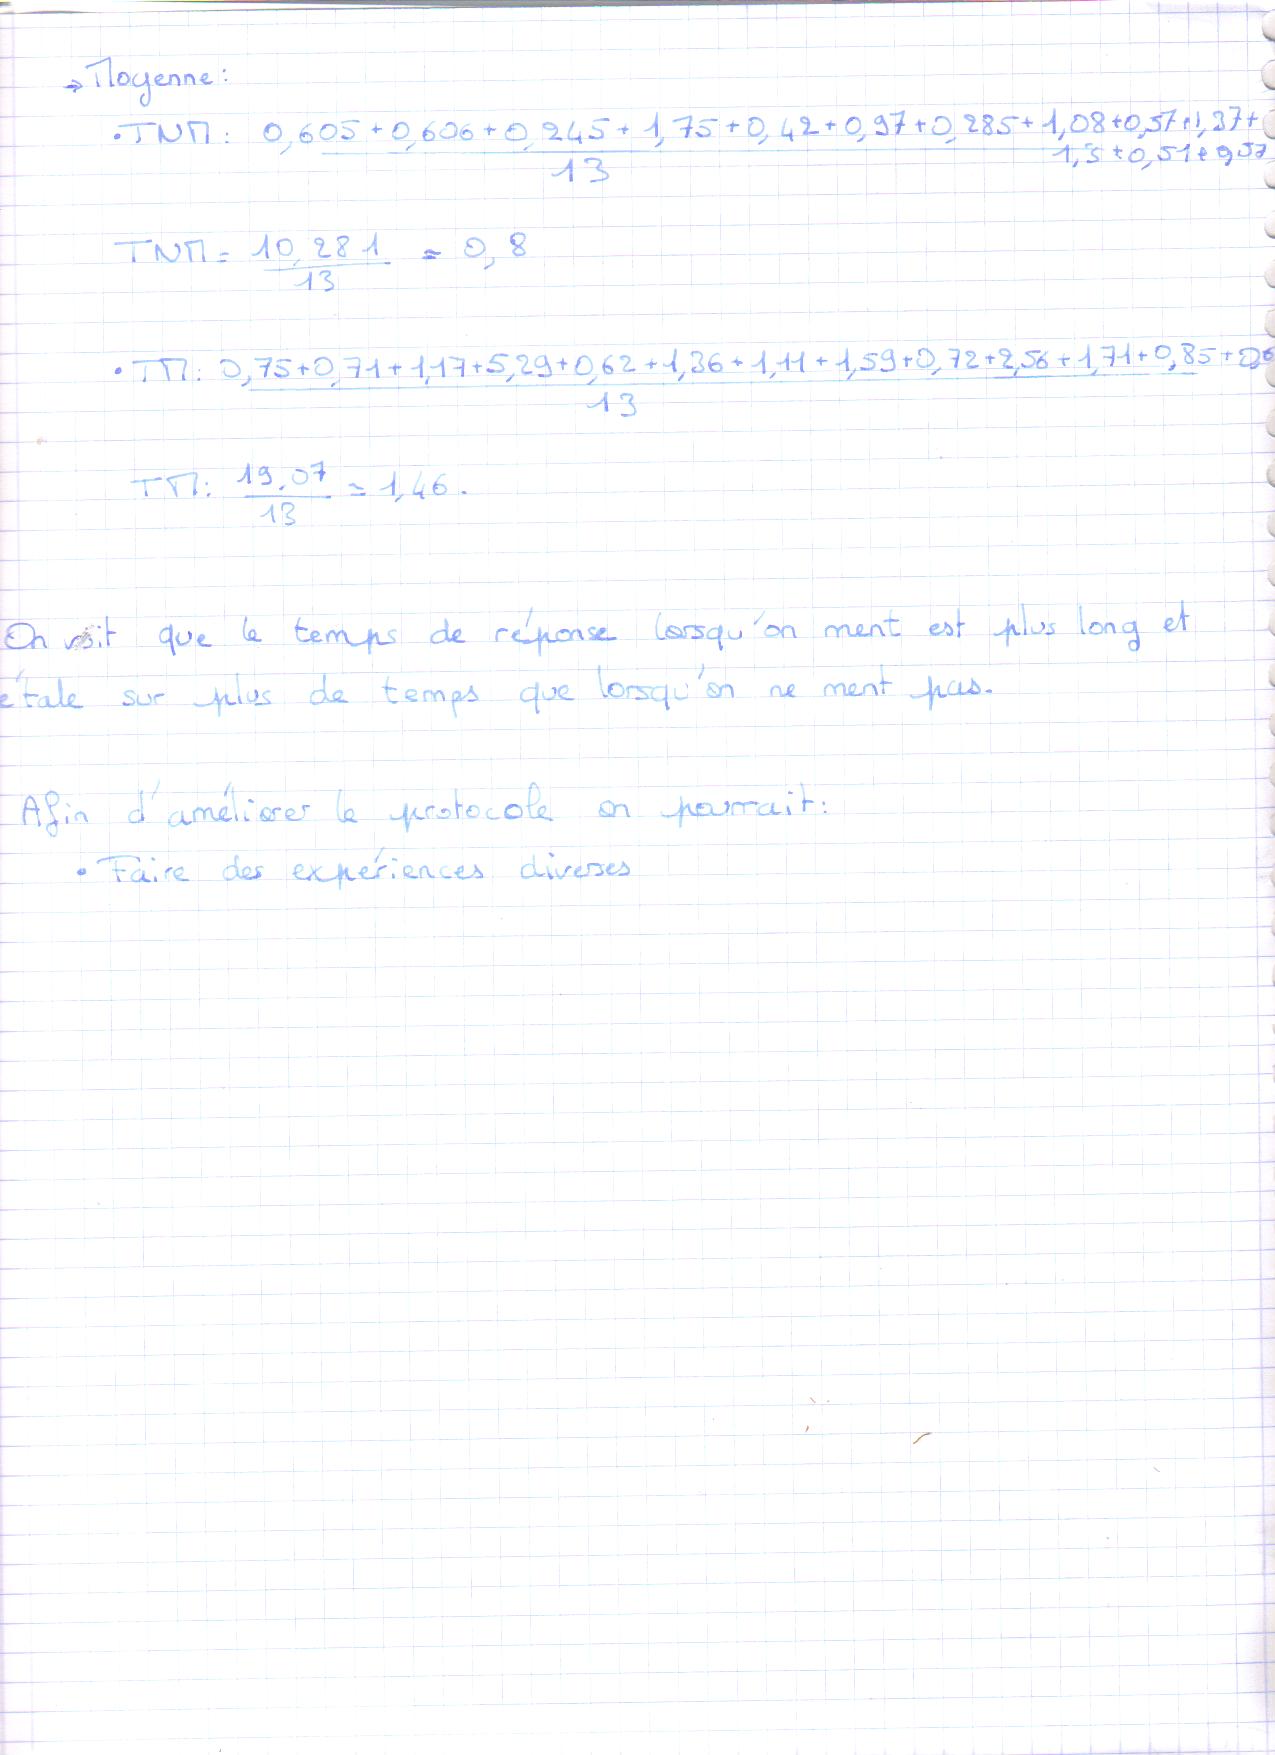 → Moyenne:
• TNM: 0,605 + 0,606 + 0,245 + 1,75 + 0,42 + 0,97 + 0,285 + 1,08 + 0,57 + 1,37 +
1,3 + 0,51 + 0,57
13
TNM = 10,281 = 0,8
13
• TM: 0,75 + 0,71 + 1,17 + 5,29 + 0,62 + 1,36 + 1,11 + 1,59 + 0,72 + 2,56 + 1,71 + 0,85 +
13
TM: 19,07 = 1,46.
13
On voit que le temps de réponse lorsqu'on ment est plus long et
étale sur plus de temps que lorsqu'on ne ment pas.
Afin d'améliorer le protocole on pourrait:
• Faire des expériences diverses